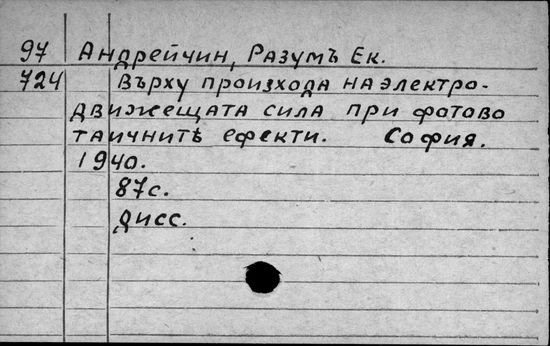 97 Андрейчин, Разумъ Ек.
724 Върху произхода на электро-
движещата сила при фотово
таичнитѣ ефекти. София.
1940.
87с.
дисс.